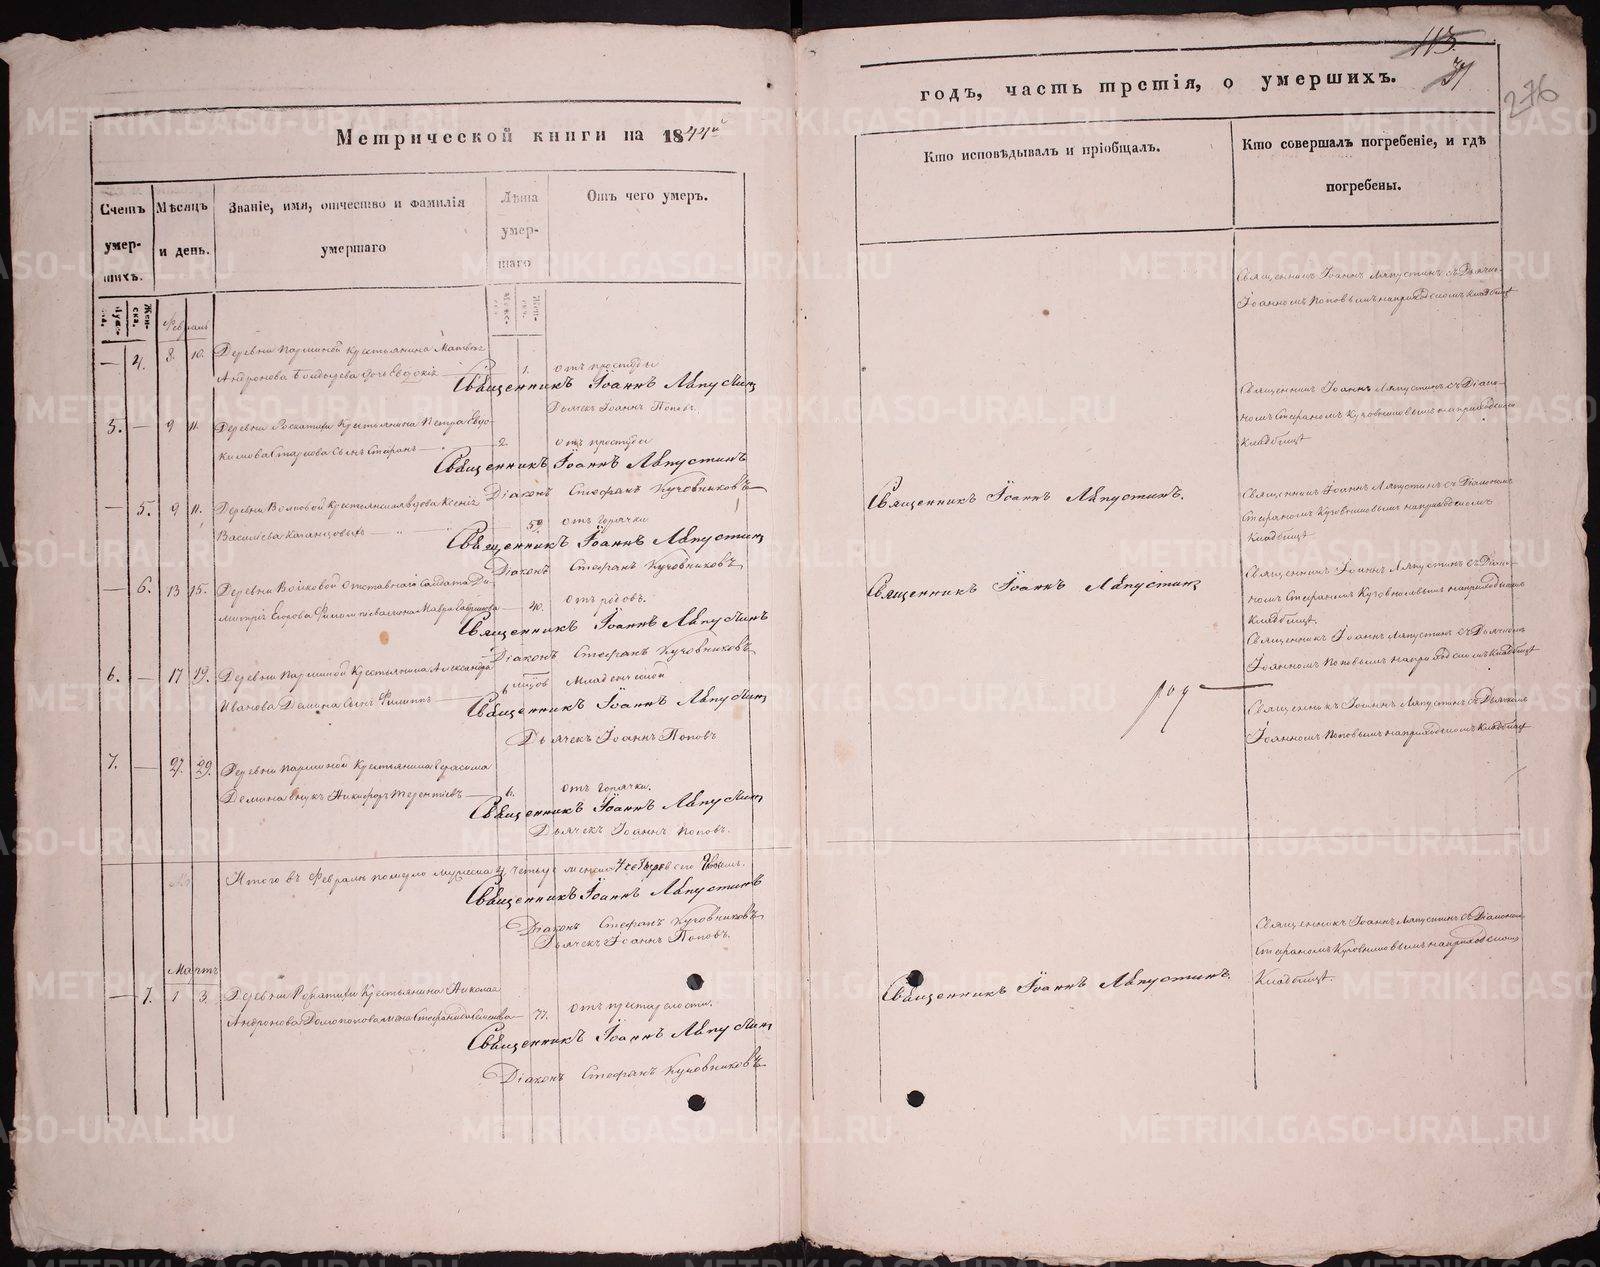 113.
37
276
Метрической книги на 1844й
годъ, часть третія, о умершихъ.
Счетъ умер-шихъ.
Мѣсяцъ и день.
Званіе, имя, отчество и фамилія умершаго
Лѣта умер-шаго
Отъ чего умер.
Кто исповѣдывалъ и пріобщалъ.
Кто совершалъ погребеніе, и гдѣ погребены.
Жен-ска.
Февраль
— 4. 8. 10. Деревни Паршиной Крестьянина Матвѣя
Андронова дочь Евдокія 1. отъ простуды
Священникъ Іоаннъ Ляпустинъ
Дьячекъ Іоаннъ Попов.
Священникъ Іоаннъ Ляпустинъ съ Дьячко-
Іоанномъ Поповымъ на приходскомъ кладбищѣ
5. — 9 11. Деревни Крестьянина Петра Евдо-
кимова сынъ Стефанъ 2. отъ простуды
Священникъ Іоаннъ Ляпустинъ
Діаконъ Стефанъ Кузовниковъ
Священникъ Іоаннъ Ляпустинъ съ Діако-
номъ Стефаномъ Кузовниковымъ на приходскомъ
кладбищѣ
— 5. 9 11. Деревни Волковой Крестьянская вдова Ксенія
Васильева 59. отъ горячки
Священникъ Іоаннъ Ляпустинъ
Діаконъ Стефанъ Кузовниковъ
Священникъ Іоаннъ Ляпустинъ.
Священникъ Іоаннъ Ляпустинъ съ Діакономъ
Стефаномъ Кузовниковымъ на приходскомъ
кладбищѣ
— 6. 13 15. Деревни Волковой отставнаго солдата Ди-
митрія Егорова жена Мавра 40. отъ родовъ.
Священникъ Іоаннъ Ляпустинъ
Діаконъ Стефанъ Кузовниковъ
Священникъ Іоаннъ Ляпустинъ
Священникъ Іоаннъ Ляпустинъ съ Діако-
номъ Стефаномъ Кузовниковымъ на приходскомъ
кладбищѣ
6. — 17 19. Деревни Паршиной Крестьянина Александра
Иванова Демина сынъ Филиппъ Младенческой
Священникъ Іоаннъ Ляпустинъ
Дьячекъ Іоаннъ Поповъ
Священникъ Іоаннъ Ляпустинъ съ Дьячкомъ
Іоанномъ Поповымъ на приходскомъ кладбищѣ
7. — 27. 29. Деревни Паршиной Крестьянина Герасима
Демина внукъ Никифоръ Терентіевъ 6. отъ горячки.
Священникъ Іоаннъ Ляпустинъ
Дьячекъ Іоаннъ Попов.
Священникъ Іоаннъ Ляпустинъ съ Дьячкомъ
Іоанномъ Поповымъ на приходскомъ кладбищѣ
Итого въ Февралѣ померло мужеска 4 четыре женска 4 четыре всего 8 восемь.
Священникъ Іоаннъ Ляпустинъ
Діаконъ Стефанъ Кузовниковъ
Дьячекъ Іоаннъ Попов.
Мартъ
— 7. 1 3. Деревни Крестьянина Николая
Андронова жена 77. отъ престарелости.
Священникъ Іоаннъ Ляпустинъ
Діаконъ Стефанъ Кузовниковъ
Священникъ Іоаннъ Ляпустинъ.
Священникъ Іоаннъ Ляпустинъ съ Діакономъ
Стефаномъ Кузовниковымъ на приходскомъ
кладбищѣ.
METRIKI.GASO-URAL.RU